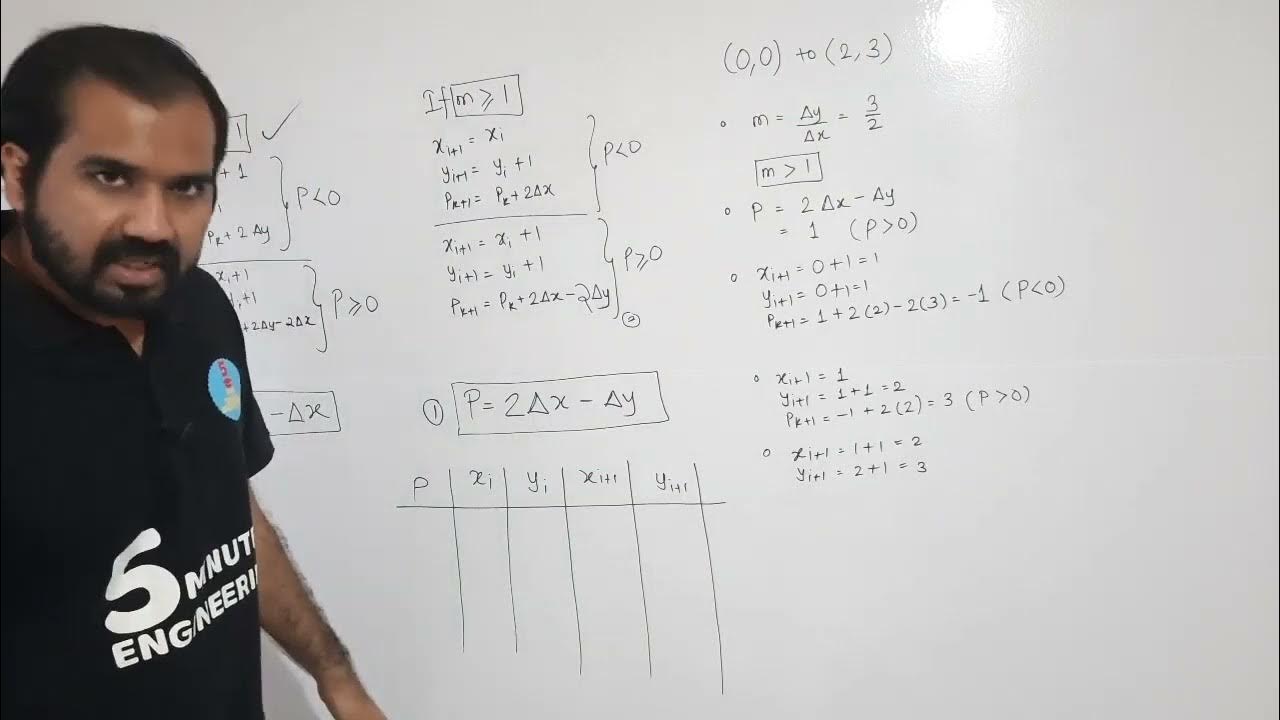 1] ✓
+ 1
Pk + 2Δy
} P<0
xi+1
+2Δy-2Δx
} P≥0
- Δx
If m ≥ 1
xi+1 = xi
yi+1 = yi + 1
Pk+1 = Pk + 2Δx
} P<0
xi+1 = xi + 1
yi+1 = yi + 1
Pk+1 = Pk + 2Δx - 2Δy
} P≥0
②
① P = 2Δx - Δy
P | xi | yi | xi+1 | yi+1 |
(0,0) to (2,3)
• m = Δy/Δx = 3/2
m > 1
• P = 2Δx - Δy
= 1 (P>0)
• xi+1 = 0+1 = 1
yi+1 = 0+1=1
Pk+1 = 1 + 2(2) - 2(3) = -1 (P<0)
• xi+1 = 1
yi+1 = 1+1 = 2
Pk+1 = -1 + 2(2) = 3 (P>0)
• xi+1 = 1+1 = 2
yi+1 = 2+1 = 3
5
5 MINUTE
ENGINEERI